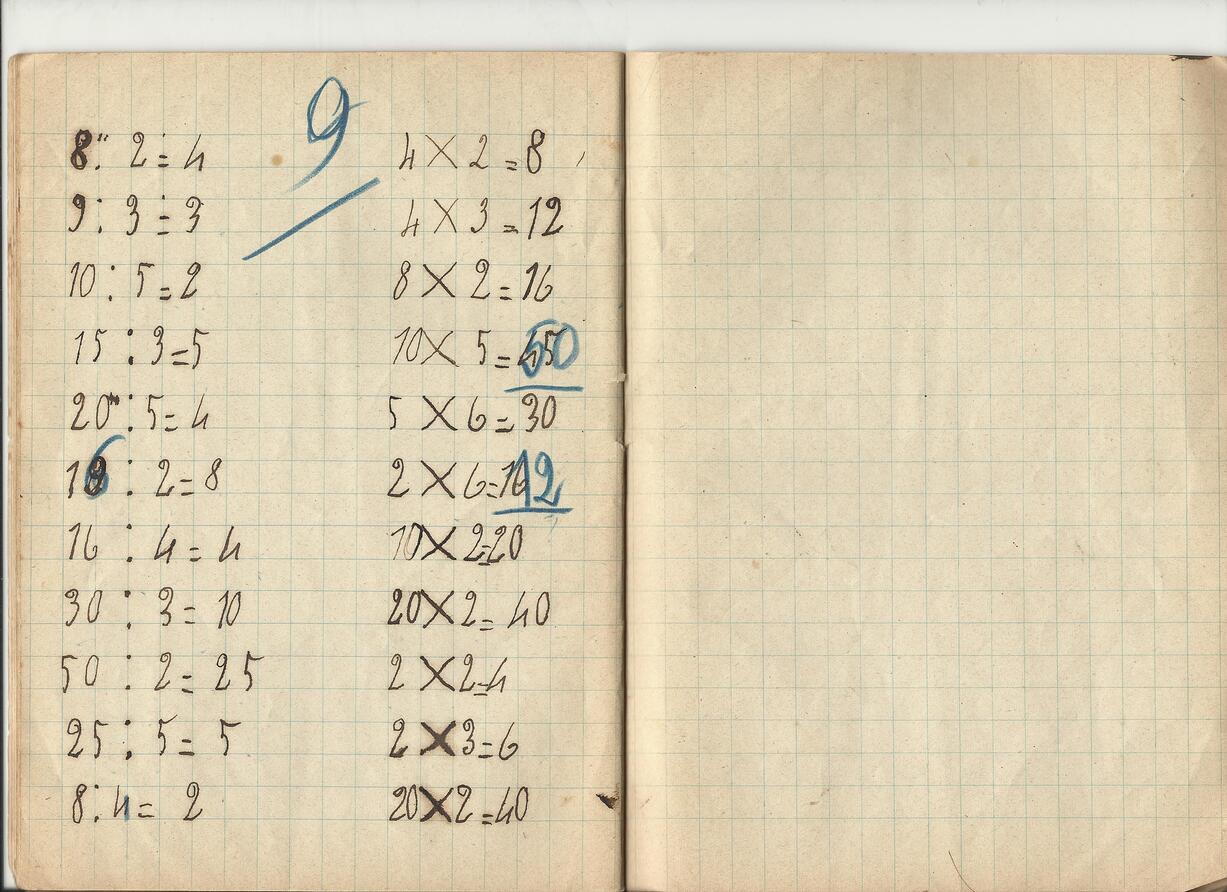 9
8 : 2 = 4
9 : 3 = 3
10 : 5 = 2
15 : 3 = 5
20 : 5 = 4
16 : 2 = 8
16 : 4 = 4
30 : 3 = 10
50 : 2 = 25
25 : 5 = 5
8 : 4 = 2
4 X 2 = 8
4 X 3 = 12
8 X 2 = 16
10 X 5 = 45 50
5 X 6 = 30
2 X 6 = 16 12
10 X 2 = 20
20 X 2 = 40
2 X 2 = 4
2 X 3 = 6
20 X 2 = 40